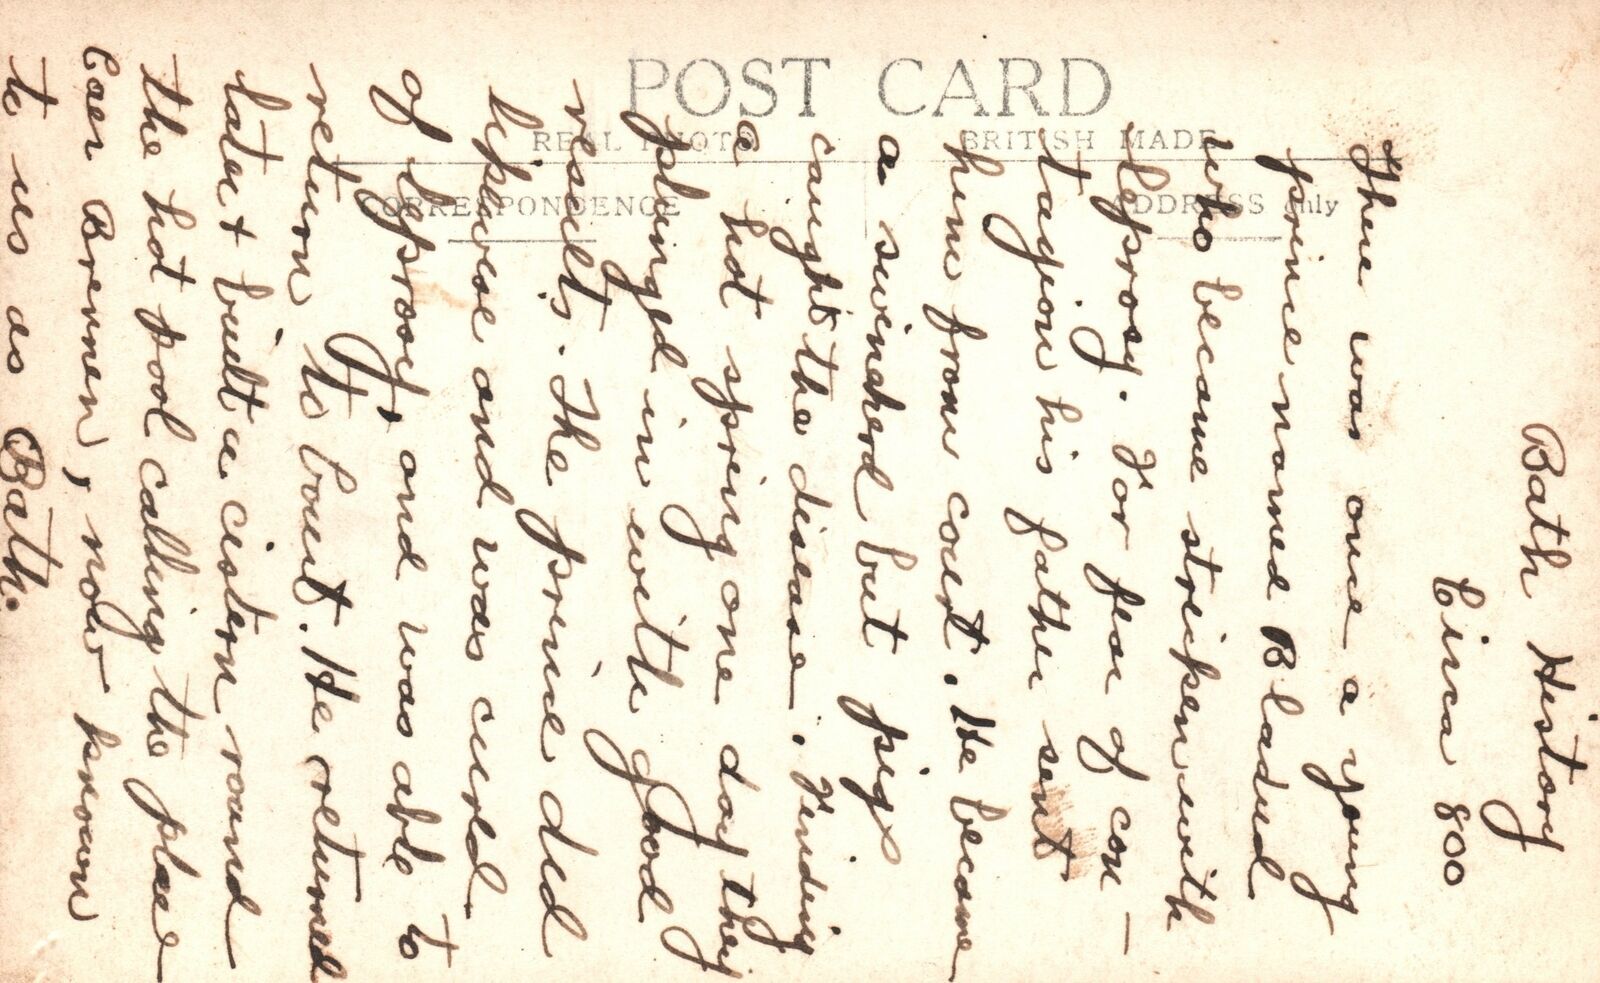 POST CARD
REAL PHOTO
BRITISH MADE
CORRESPONDENCE
ADDRESS only
Bath History
Circa 800
There was once a young
prince named Bladud
who became stricken with
leprosy. For fear of con-
tagion his father sent
him from court. He became
a swineherd but pigs
caught the disease. Finding
a hot spring one day they
plunged in with good
results. The prince did
likewise and was cured
of leprosy, and was able to
return to court. He returned
later & built a cistern round
the hot pool calling the place
Caer Brennen, now known
to us as Bath.